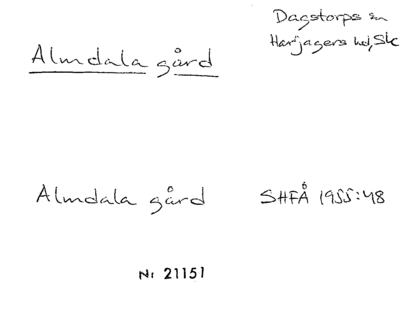 Dagstorps sn
Harjagers hd, Sk
Almdala gård
Almdala gård SHFÅ 1955:48
Nr 21151